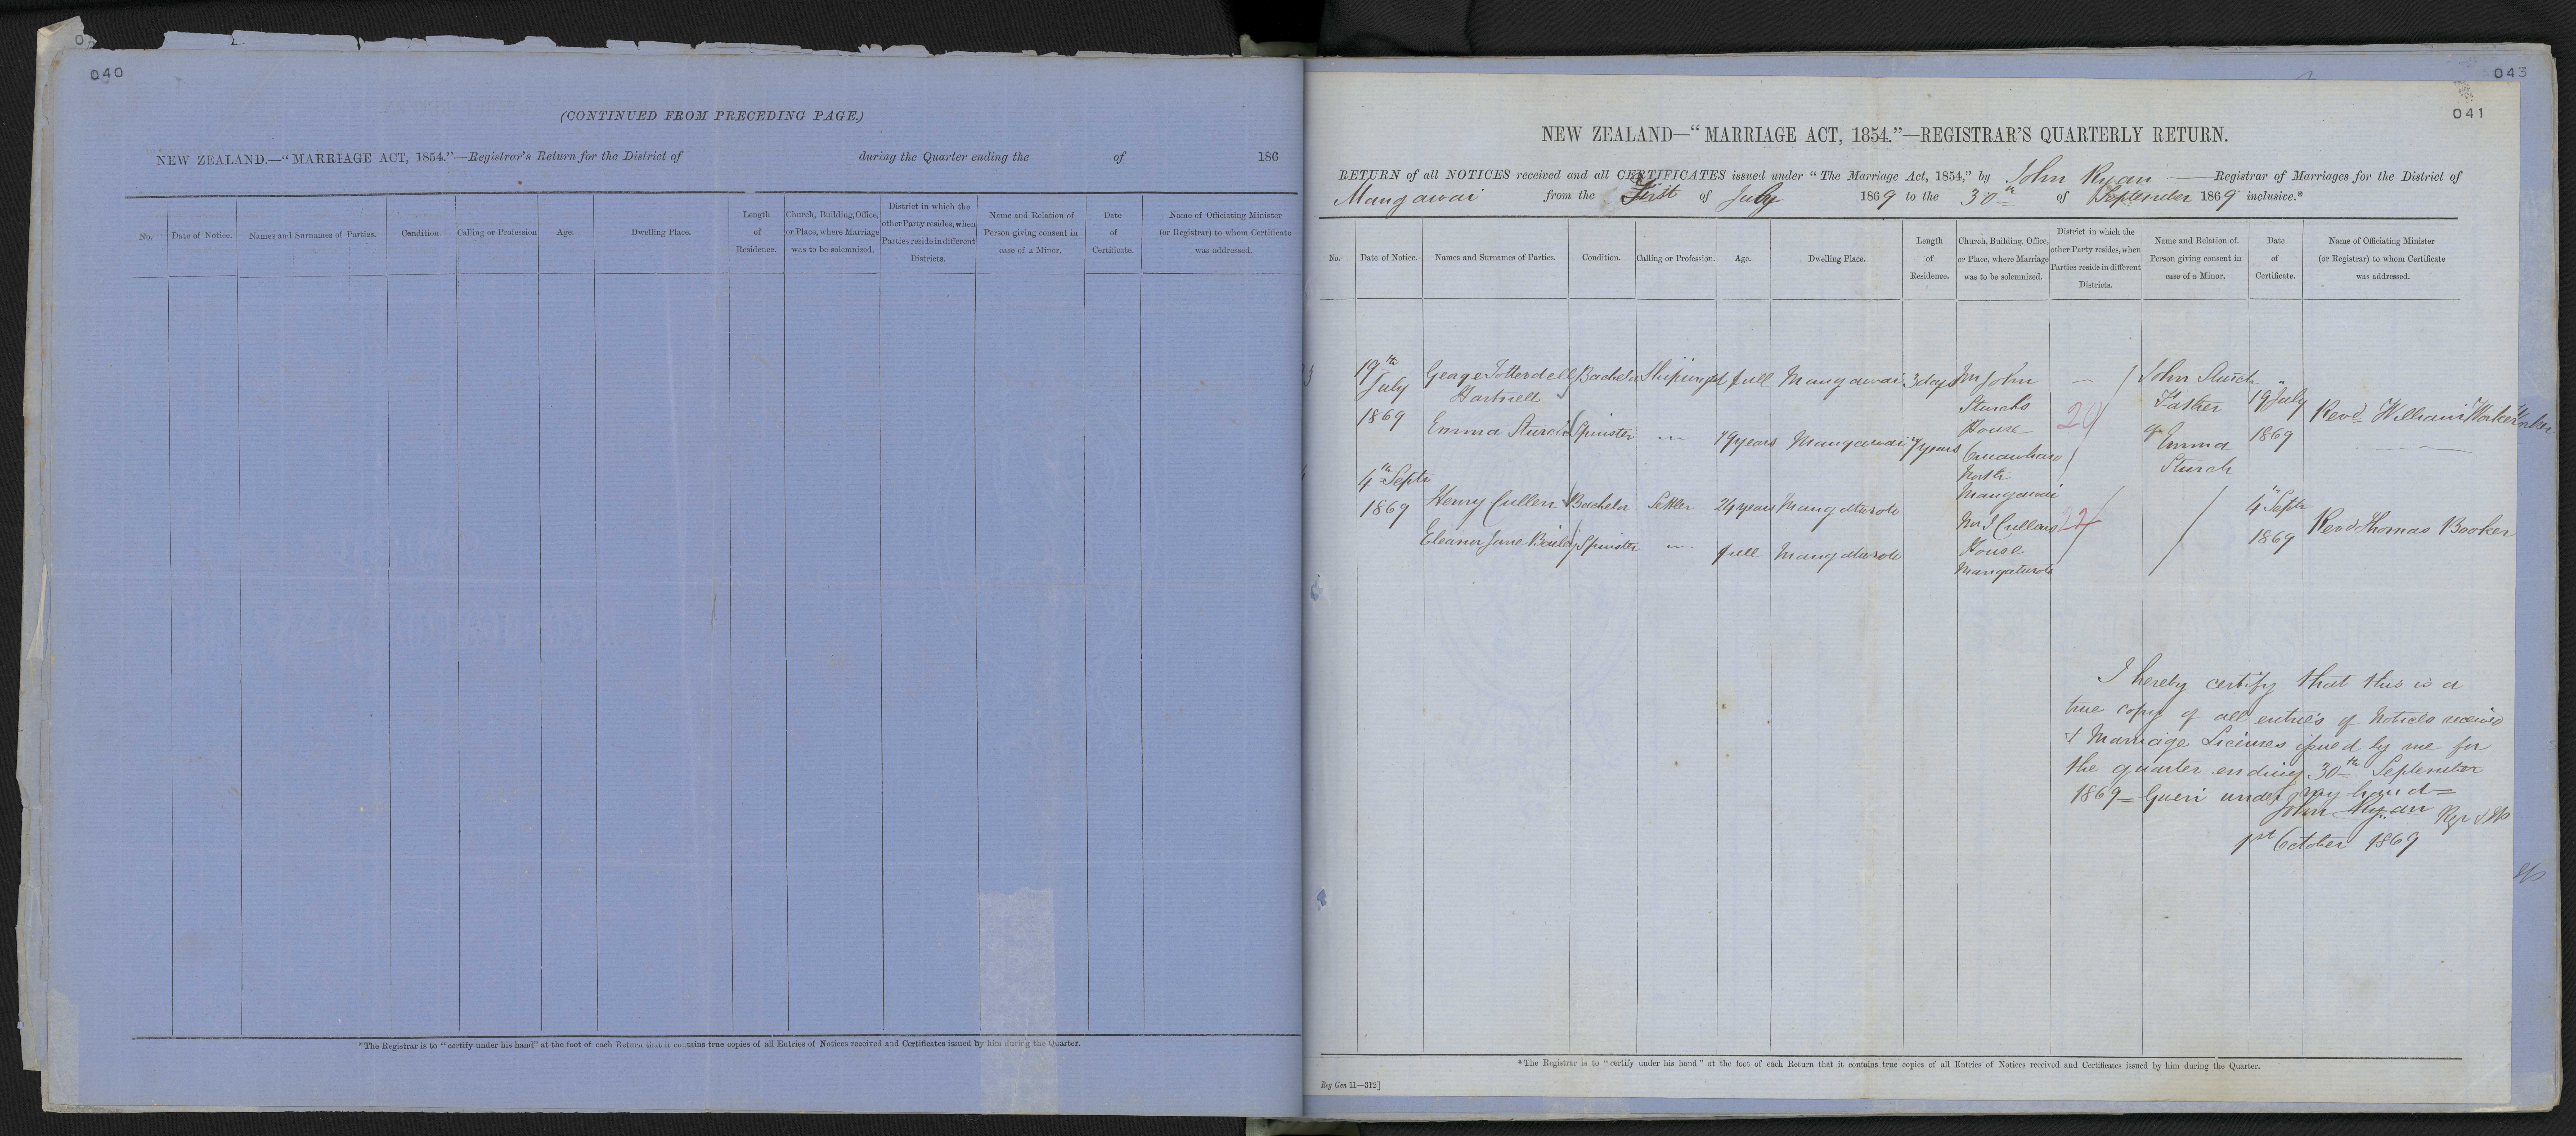 040
(CONTINUED FROM PRECEDING PAGE.)
NEW ZEALAND.—“MARRIAGE ACT, 1854.”—Registrar's Return for the District of during the Quarter ending the of 186
No. Date of Notice. Names and Surnames of Parties. Condition. Calling or Profession Age. Dwelling Place. Length of Residence. Church, Building, Office, or Place, where Marriage was to be solemnized. District in which the other Party resides, when Parties reside in different Districts. Name and Relation of Person giving consent in case of a Minor. Date of Certificate. Name of Officiating Minister (or Registrar) to whom Certificate was addressed.
*The Registrar is to “certify under his hand” at the foot of each Return that it contains true copies of all Entries of Notices received and Certificates issued by him during the Quarter.
043
041
NEW ZEALAND—“MARRIAGE ACT, 1854.”—REGISTRAR'S QUARTERLY RETURN.
RETURN of all NOTICES received and all CERTIFICATES issued under “The Marriage Act, 1854,” by John Ryan Registrar of Marriages for the District of
Mangawai from the First of July 1869 to the 30th of September 1869 inclusive.*
No. Date of Notice. Names and Surnames of Parties. Condition. Calling or Profession. Age. Dwelling Place. Length of Residence. Church, Building, Office, or Place, where Marriage was to be solemnized. District in which the other Party resides, when Parties reside in different Districts. Name and Relation of Person giving consent in case of a Minor. Date of Certificate. Name of Officiating Minister (or Registrar) to whom Certificate was addressed.
19th July 1869 George Totterdell Hartnell Bachelor full Mangawai 3 days Mr John Sturch's House North Mangawai John Sturch Father of Emma Sturch 19th July 1869 Revd William Worker
Emma Sturch Spinster 19 years Mangawai 7 years
4th Septr 1869 Henry Cullen Bachelor Settler 24 years Mangaturoto Mr J Cullens House Mangaturoto 4th Septr 1869 Revd Thomas Booker
Eleanor Jane Spinster full Mangaturoto
I hereby certify that this is a
true copy of all entries of Notices received
+ Marriage Licenses issued by me for
the quarter ending 30th September
1869 = Given under my hand =
John Ryan
1st October 1869
*The Registrar is to “certify under his hand” at the foot of each Return that it contains true copies of all Entries of Notices received and Certificates issued by him during the Quarter.
Reg Gen 11—312]